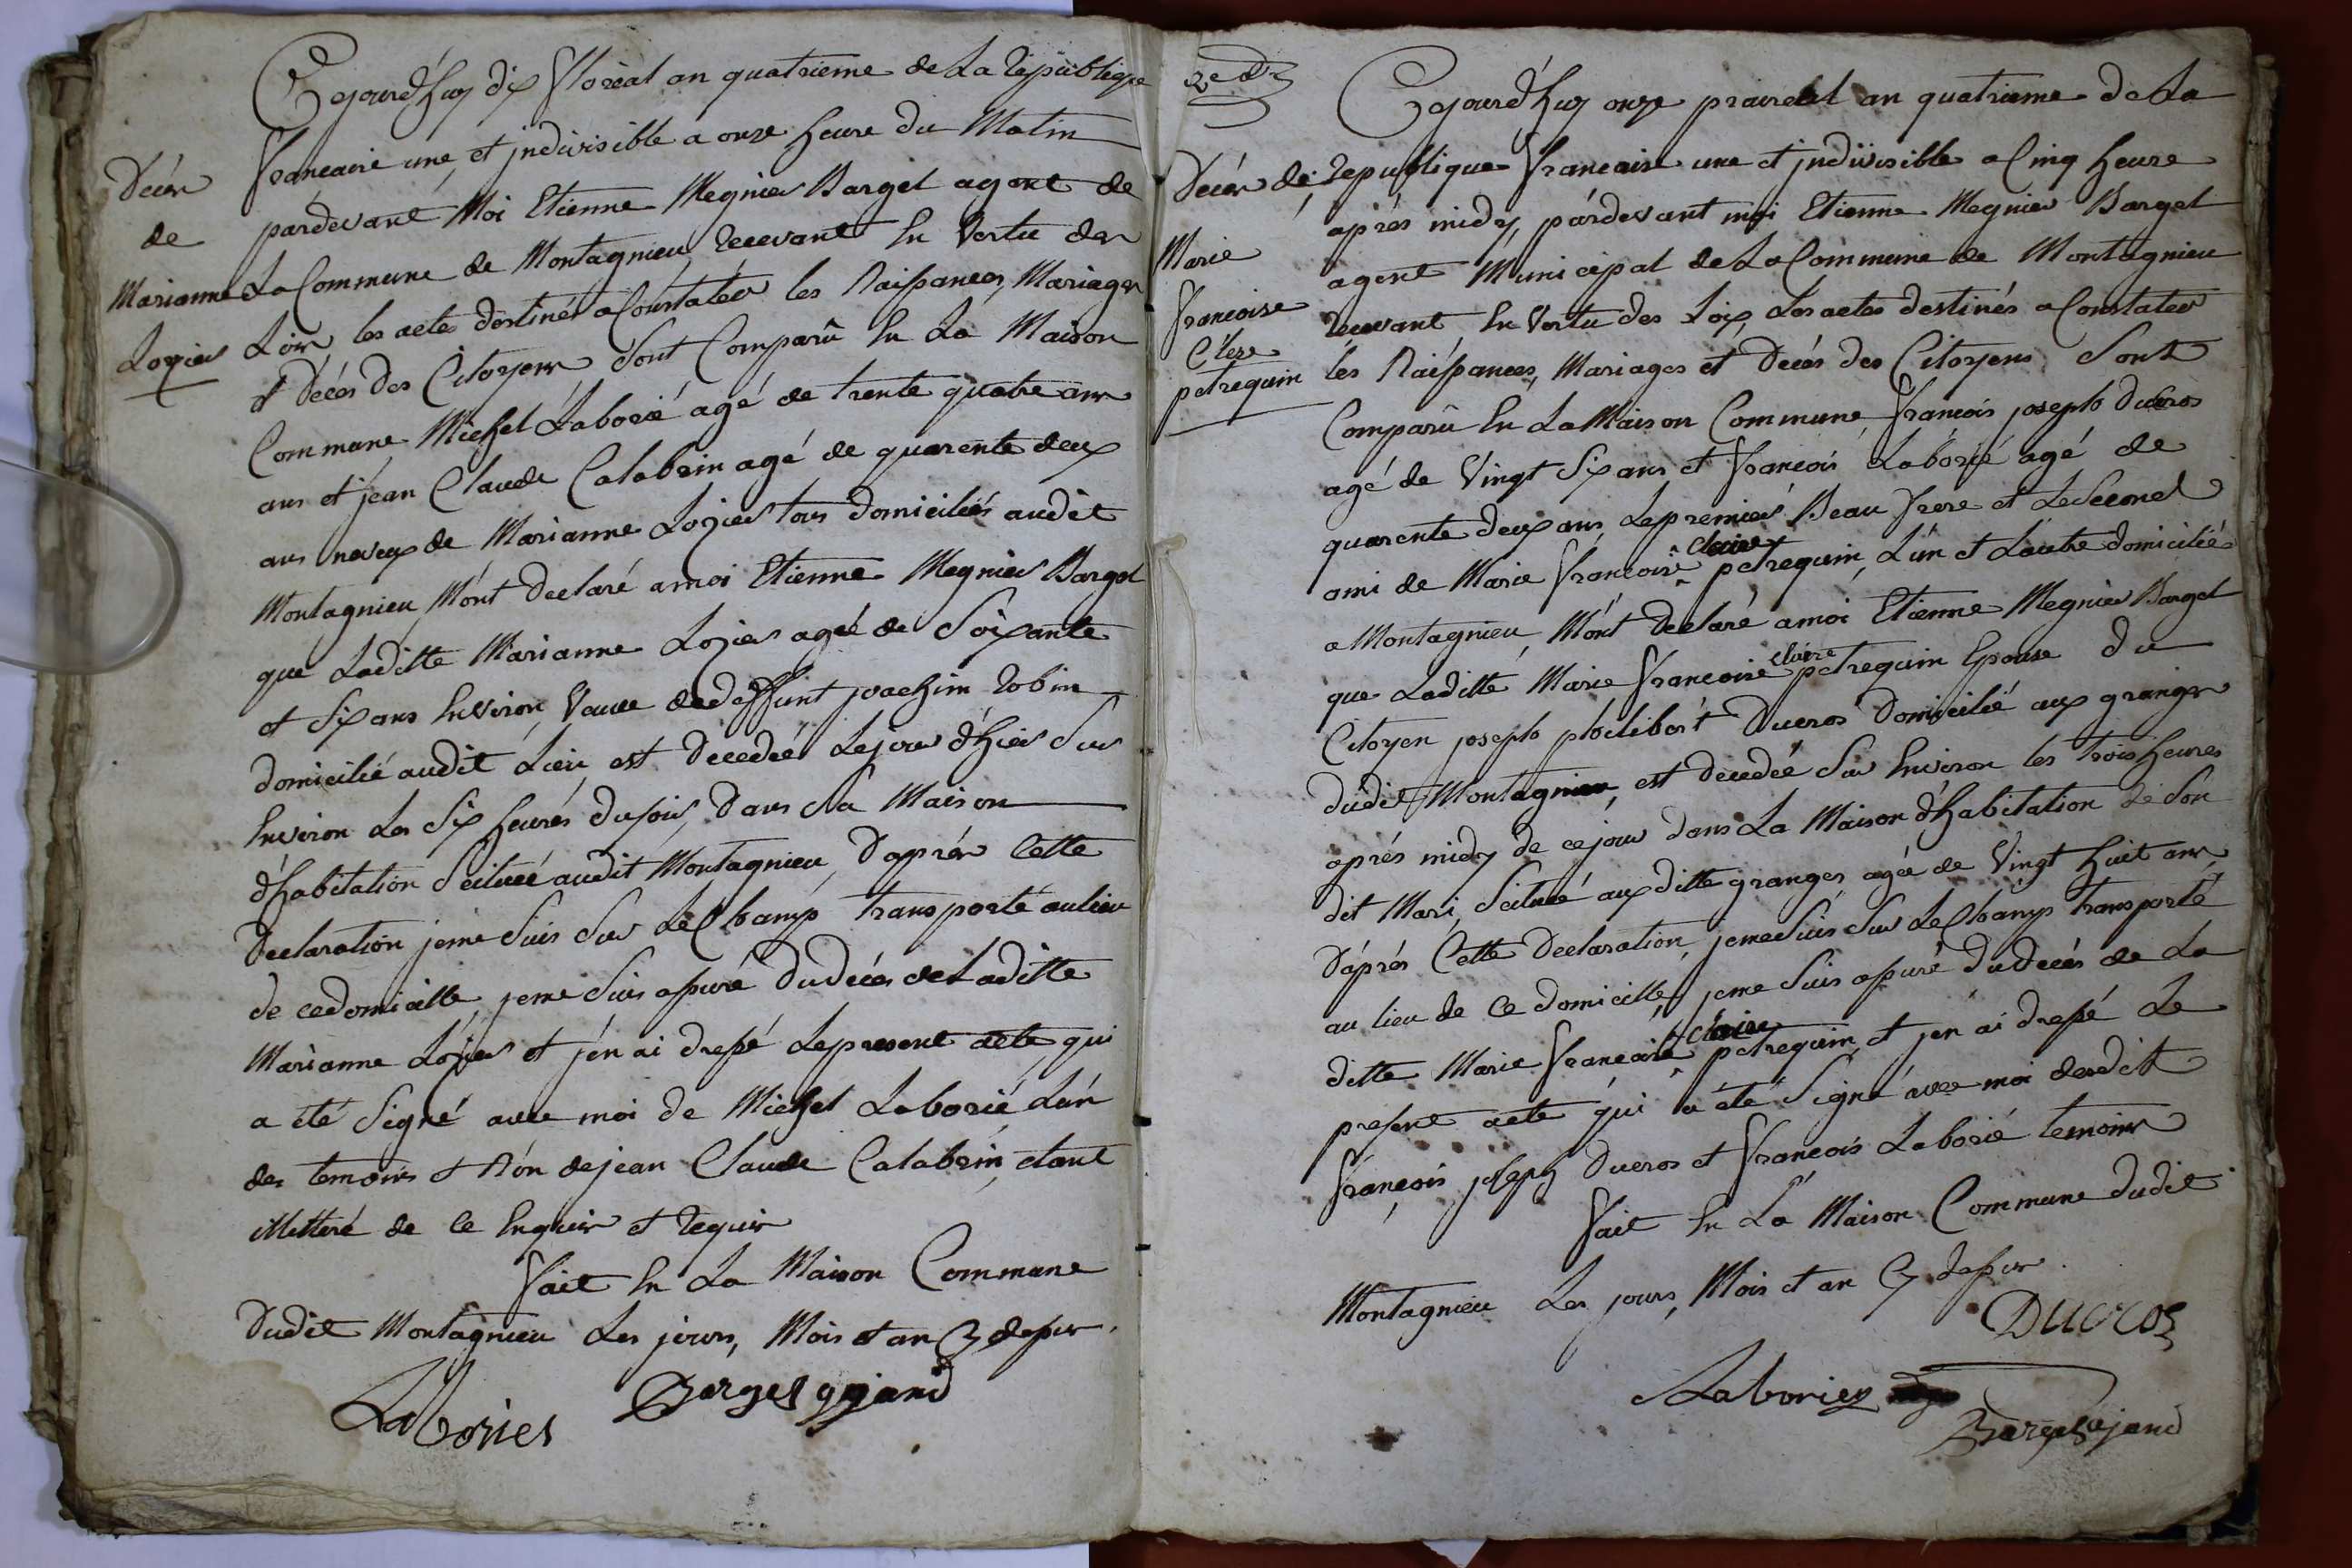 Décès
de
Marianne
Logier
Cejourd'huy dix floréal an quatrieme de La République
francaise une, et jndivisible a onze heure du Matin
pardevant Moi Etienne Megnier Barget agent de
La Commune de Montagnieu, recevant En Vertu des
Loix les actes destinés a Constater les Naissances, Mariages
et Décés des Citoyens Sont Comparû En La Maison
Commune Michel Laborié agé de trente quatre ans
ans et jean Claude Calabrin agé de quarente deux
ans neveux de Marianne Logier tous domiciliés audit
Montagnieu, M'ont declaré amoi Etienne Megnier Barget
que Laditte Marianne Logier agée de Soixante
et Six ans Environ, Veuve dedeffunt joachim robin
domicilié audit Lieu est Decedée Lejour d'hier Sur
Environ Les Six heures dusoir, Dans Sa Maison
d'habitation Scituée audit Montagnieu, D'aprés Cette
Declaration jeme Suis Sur Le Champ transporté aulieu
de cedomicille, jeme Suis assuré Dudécés de Laditte
Marianne Logier et j'en ai dressé Lepresent acte, qui
a été Signé avec moi de Michel Laborié L'un
des temoins et Non dejean Claude Calabrin, étant
illetteré de ce Enquis et requis
fait En La Maison Commune
Dudit Montagnieu Les jours, Mois et an Cy dessus.
Labories Barget ajand
2e d.
Décés de
Marie
francoise
Clere
petrequin
Cejourd'huy onze prairéal an quatrieme de La
republique francaise une et jndivisible a Cinq heure
aprés midy, pardevant moi Etienne Megnier Barget
agent Municipal de La Commune de Montagnieu
recevant En Vertu des Loix, Les actes destinés a Constater
les Naissances, Mariages et Décés des Citoyens Sont
Comparû En La Maison Commune, francois joseph Ducros
agé de Vingt Six ans et francois Laborié agé de
quarente deux ans, Lepremier Beau frere et Le Second
ami de Marie francoise claire petrequin, L'un et L'autre domicilié
a Montagnieu, M'ont Declaré amoi Etienne Megnier Barget
que Laditte Marie francoise claire petrequin Epouse du
Citoyen joseph Ducros Domicilié aux granges
dudit Montagnieu, est decedée Sur Environ les trois heures
aprés midy de cejour dans La Maison d'habitation de Son
dit Mari, Scituée auxditte granges, agée de Vingt huit ans,
D'aprés Cette Declaration, jeme Suis Sur Le Champ transporté
au lieu de Ce domicille, jeme Suis assuré Dudécés de La
ditte Marie francoise claire petrequin, et jen ai dressé Le
present acte qui a été Signé avec moi desdits
françois joseph Ducros et francois Laborié temoins
fait En La Maison Commune dudit
Montagnieu Les jours, Mois et an Cy dessus.
Ducros
Laboriez
Barget ajand